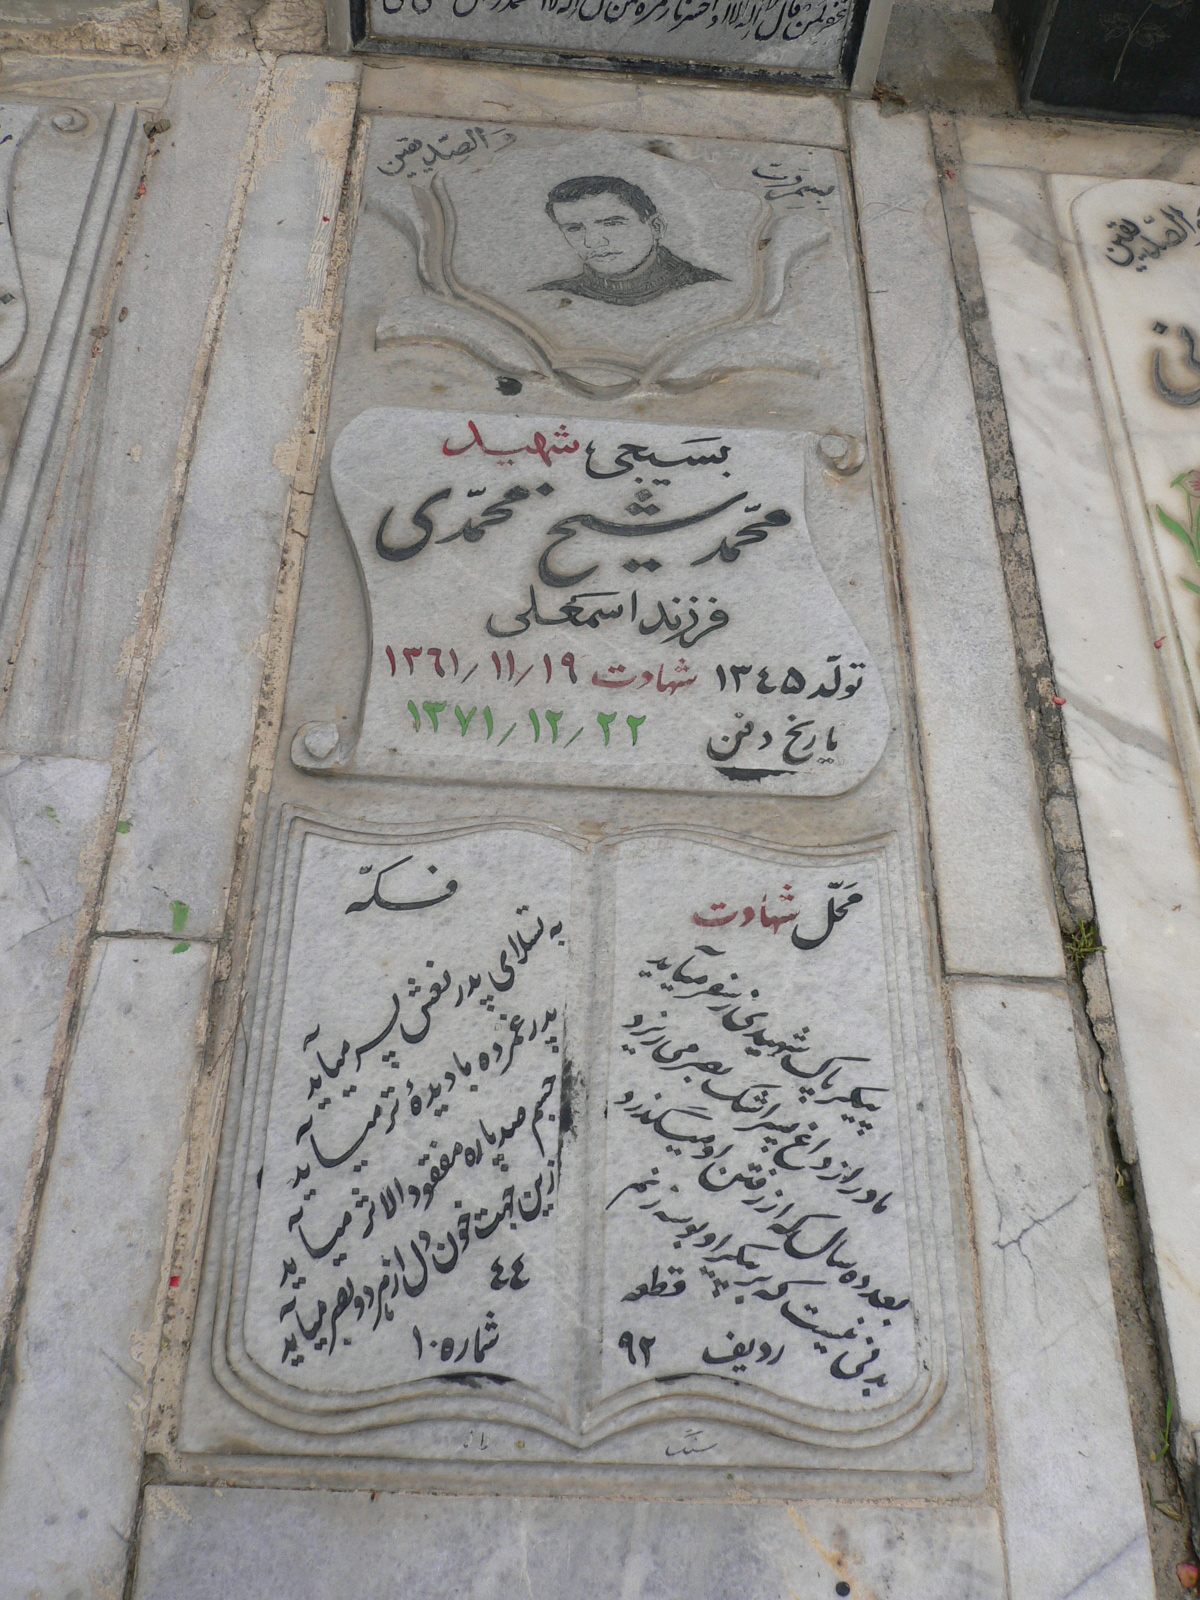 نحو لمن قال لا اله الا الله و احشرنا
بسم رب والصدیقین
والصدیقین
بسیجی شهید
محمّد شیخ محمّدی
فرزند اسمعلی
تولّد ۱۳۴۵ شهادت ۱۳۶۱/۱۱/۱۹
تاریخ دفن ۱۳۷۱/۱۲/۲۲
مَحَلّ شهادت
پیکر پاک شهیدی ز سفر میآید
مادر از داغ پسر اشک بصر می ریزد
بعد ده سال که از رفتن او میگذرد
بدنی نیست که بر پیکر او بوسه زنم
قطعه
ردیف ۹۲
فکّه
به تسلای پدر نعش پسر میآید
پدر غمزده با دیدهٔ تر میآید
جسم صد پاره مفقود الاثر میآید
زین جهت خون دل از هر دو بصر میآید
۴۴
شماره ۱۰
سنگ